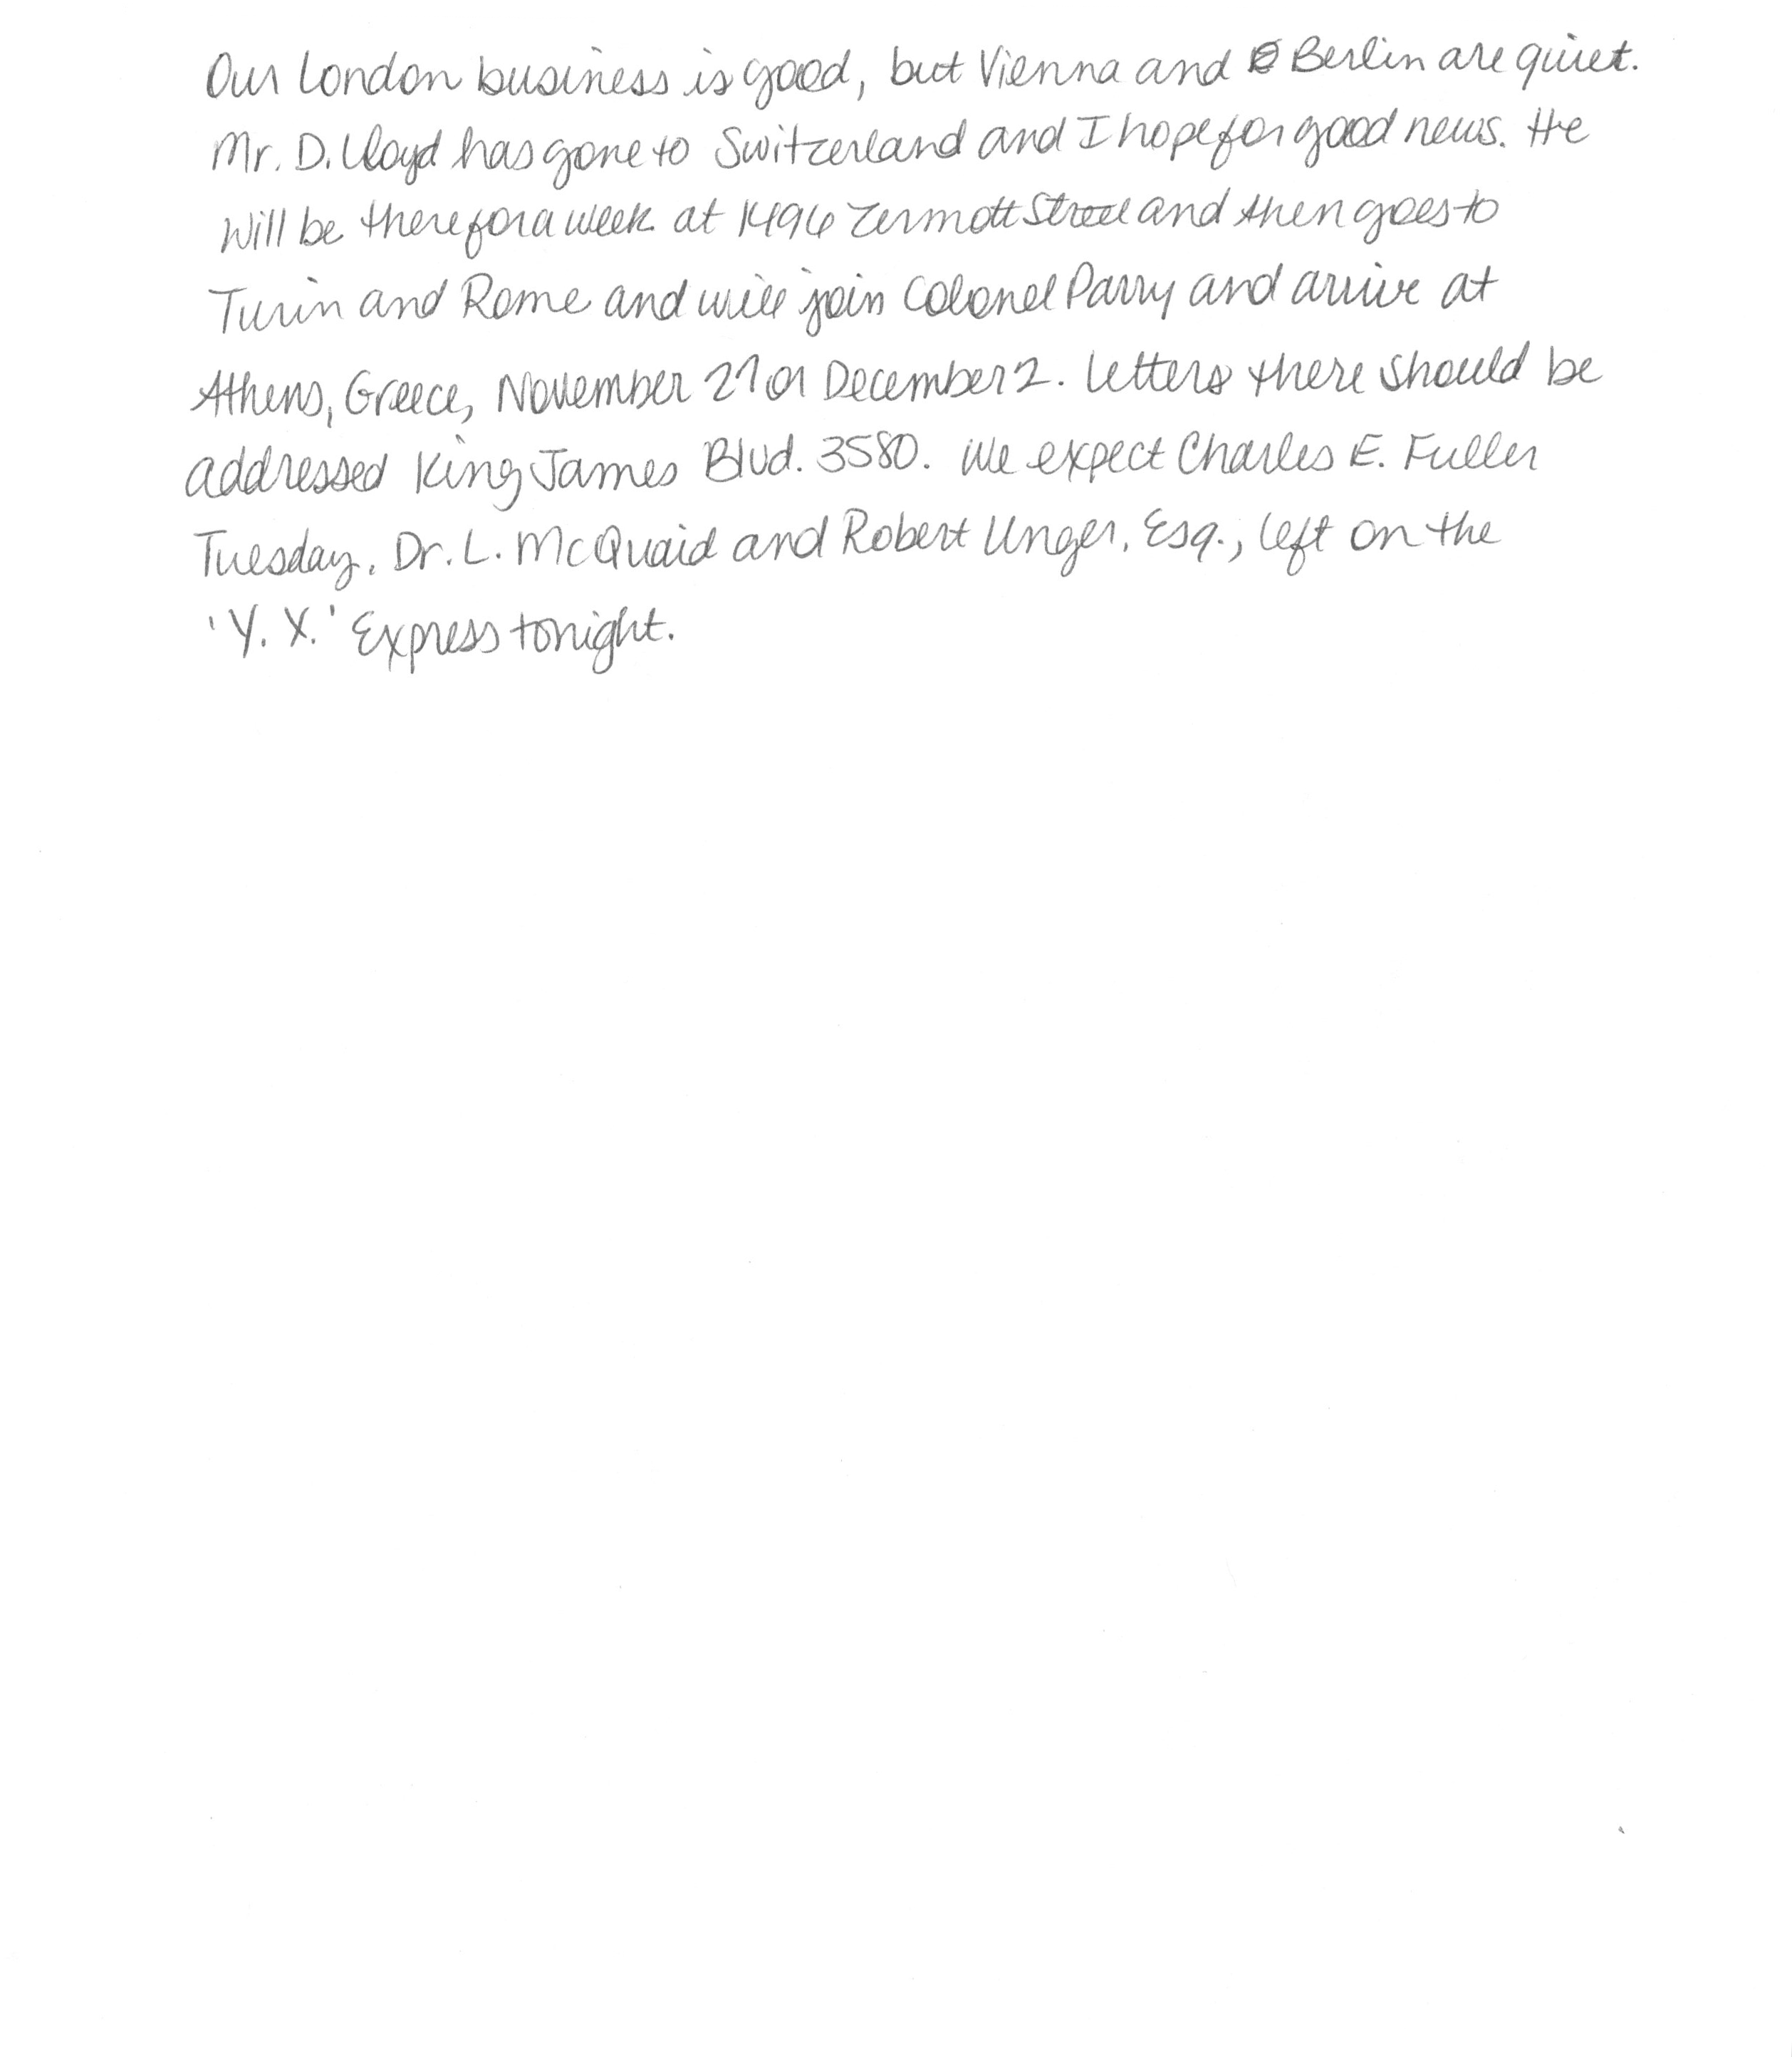 Our London business is good, but Vienna and Berlin are quiet.
Mr. D. Lloyd has gone to Switzerland and I hope for good news. He
will be there for a week at 1496 Zermott Street and then goes to
Turin and Rome and will join Colonel Parry and arrive at
Athens, Greece, November 27 or December 2. Letters there should be
addressed King James Blvd. 3580. We expect Charles E. Fuller
Tuesday. Dr. L. McQuaid and Robert Unger, Esq., left on the
'Y. X.' Express tonight.